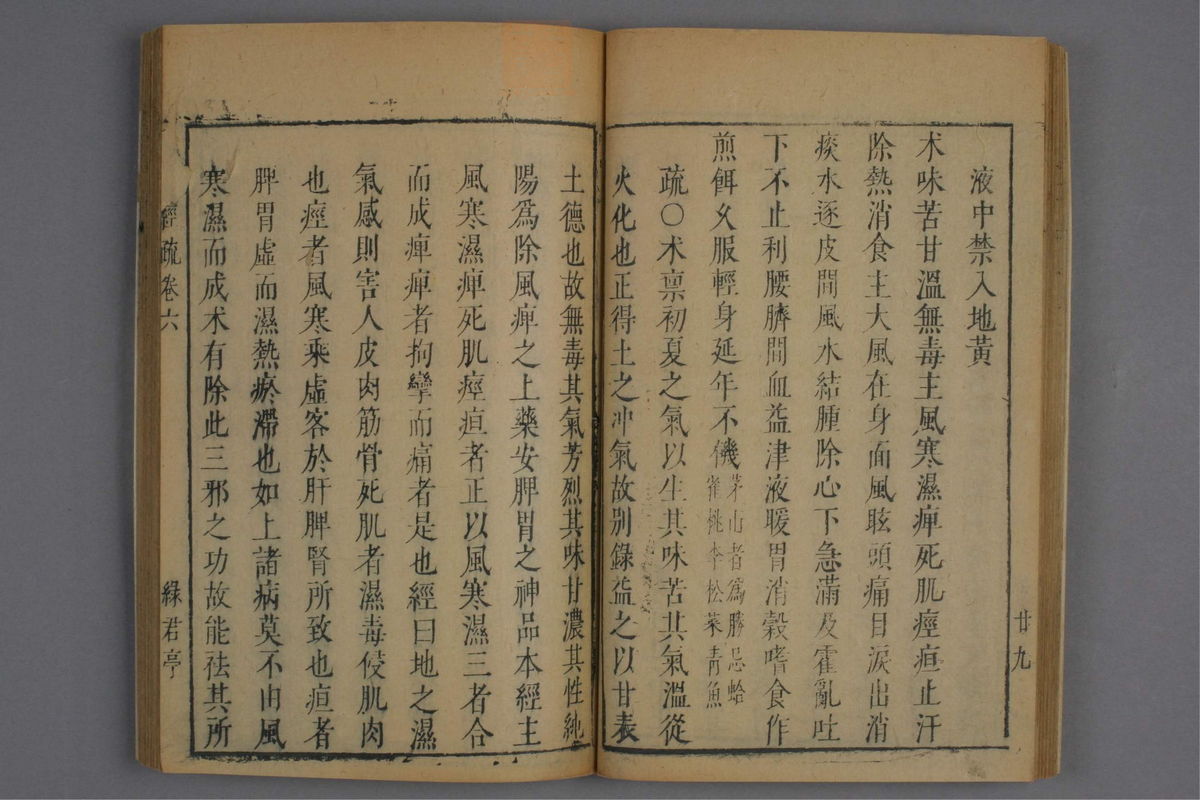 液中禁入地黃
术味苦甘溫無毒主風寒濕痺死肌痙疸止汗
除熱消食主大風在身面風眩頭痛目淚出消
痰水逐皮間風水結腫除心下急滿及霍亂吐
下不止利腰臍間血益津液暖胃消穀嗜食作
煎餌久服輕身延年不饑
茅山者爲勝忌蛤
雀桃李松菜青魚
疏○术禀初夏之氣以生其味苦其氣溫從
火化也正得土之冲氣故別錄益之以甘表
廿九
土德也故無毒其氣芳烈其味甘濃其性純
陽爲除風痺之上藥安脾胃之神品本經主
風寒濕痺死肌痙疸者正以風寒濕三者合
而成痺痺者拘攣而痛者是也經曰地之濕
氣感則害人皮肉筋骨死肌者濕毒侵肌肉
也痙者風寒乘虛客於肝脾腎所致也疸者
脾胃虛而濕熱瘀滯也如上諸病莫不由風
寒濕而成术有除此三邪之功故能祛其所
經疏卷六
綠君亭